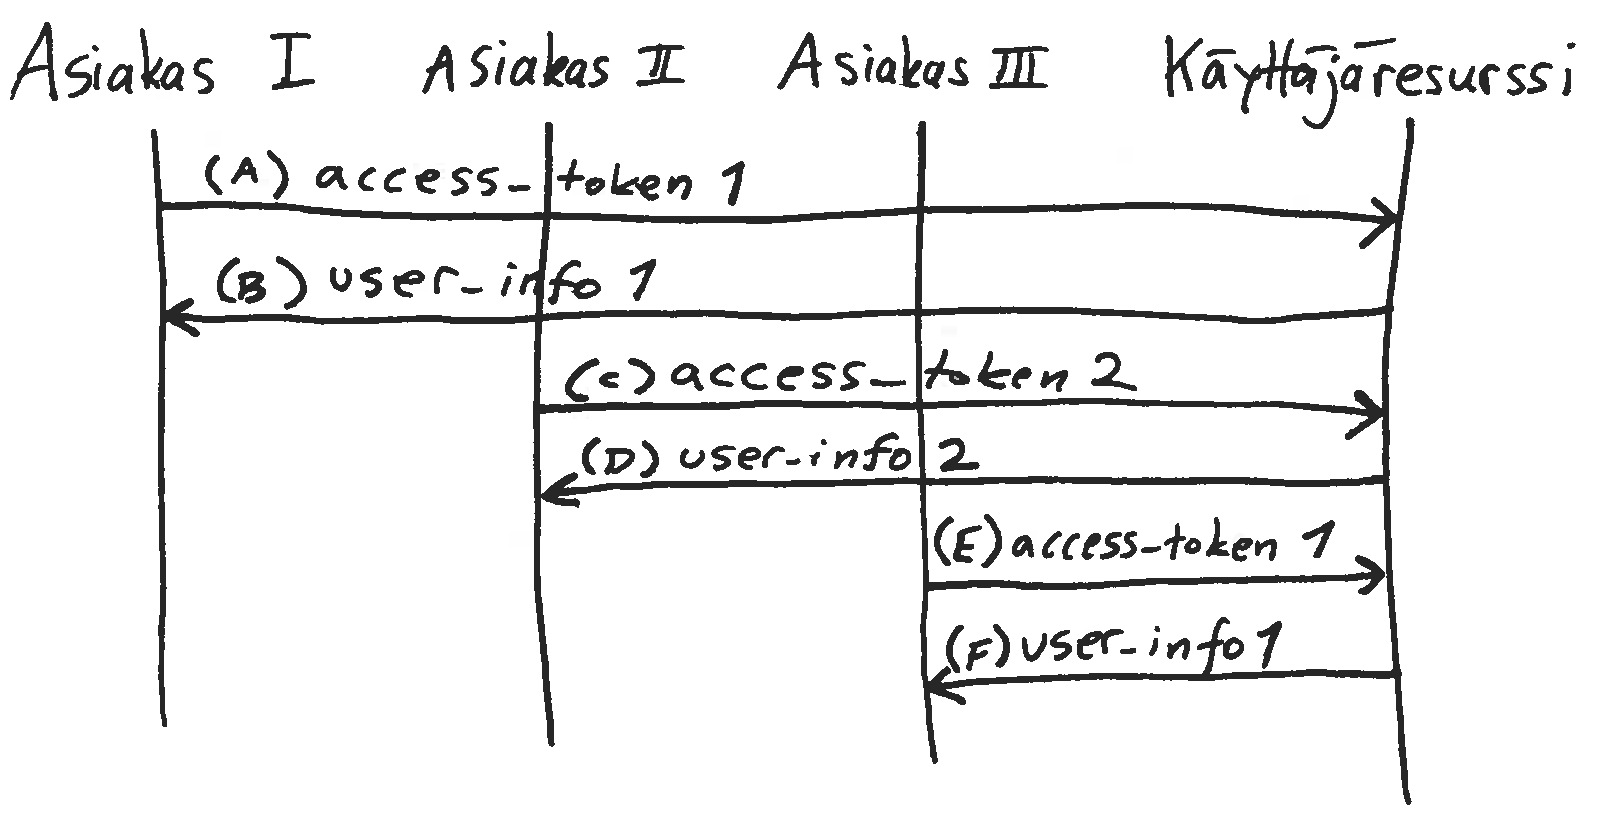 Asiakas I
Asiakas II
Asiakas III
Käyttäjäresurssi
(A) access_token 1
(B) user_info 1
(C) access_token 2
(D) user_info 2
(E) access_token 1
(F) user_info 1